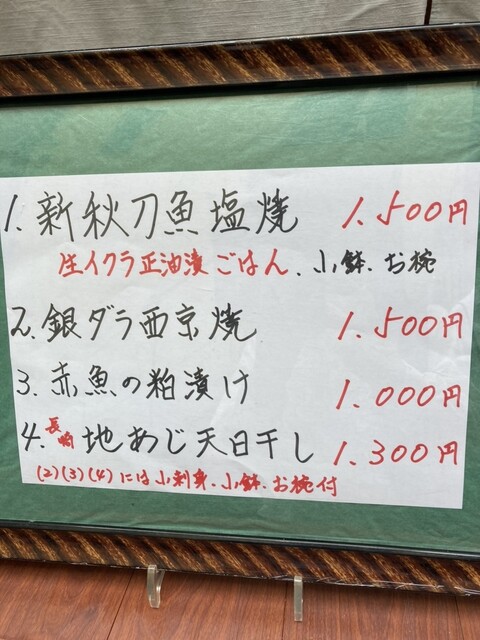 1. 新秋刀魚塩焼 1.500円
生イクラ正油漬ごはん、小鉢、お椀
2. 銀ダラ西京焼 1.500円
3. 赤魚の粕漬け 1.000円
4. 長崎 地あじ天日干し 1.300円
(2)(3)(4)には小刺身、小鉢、お椀付